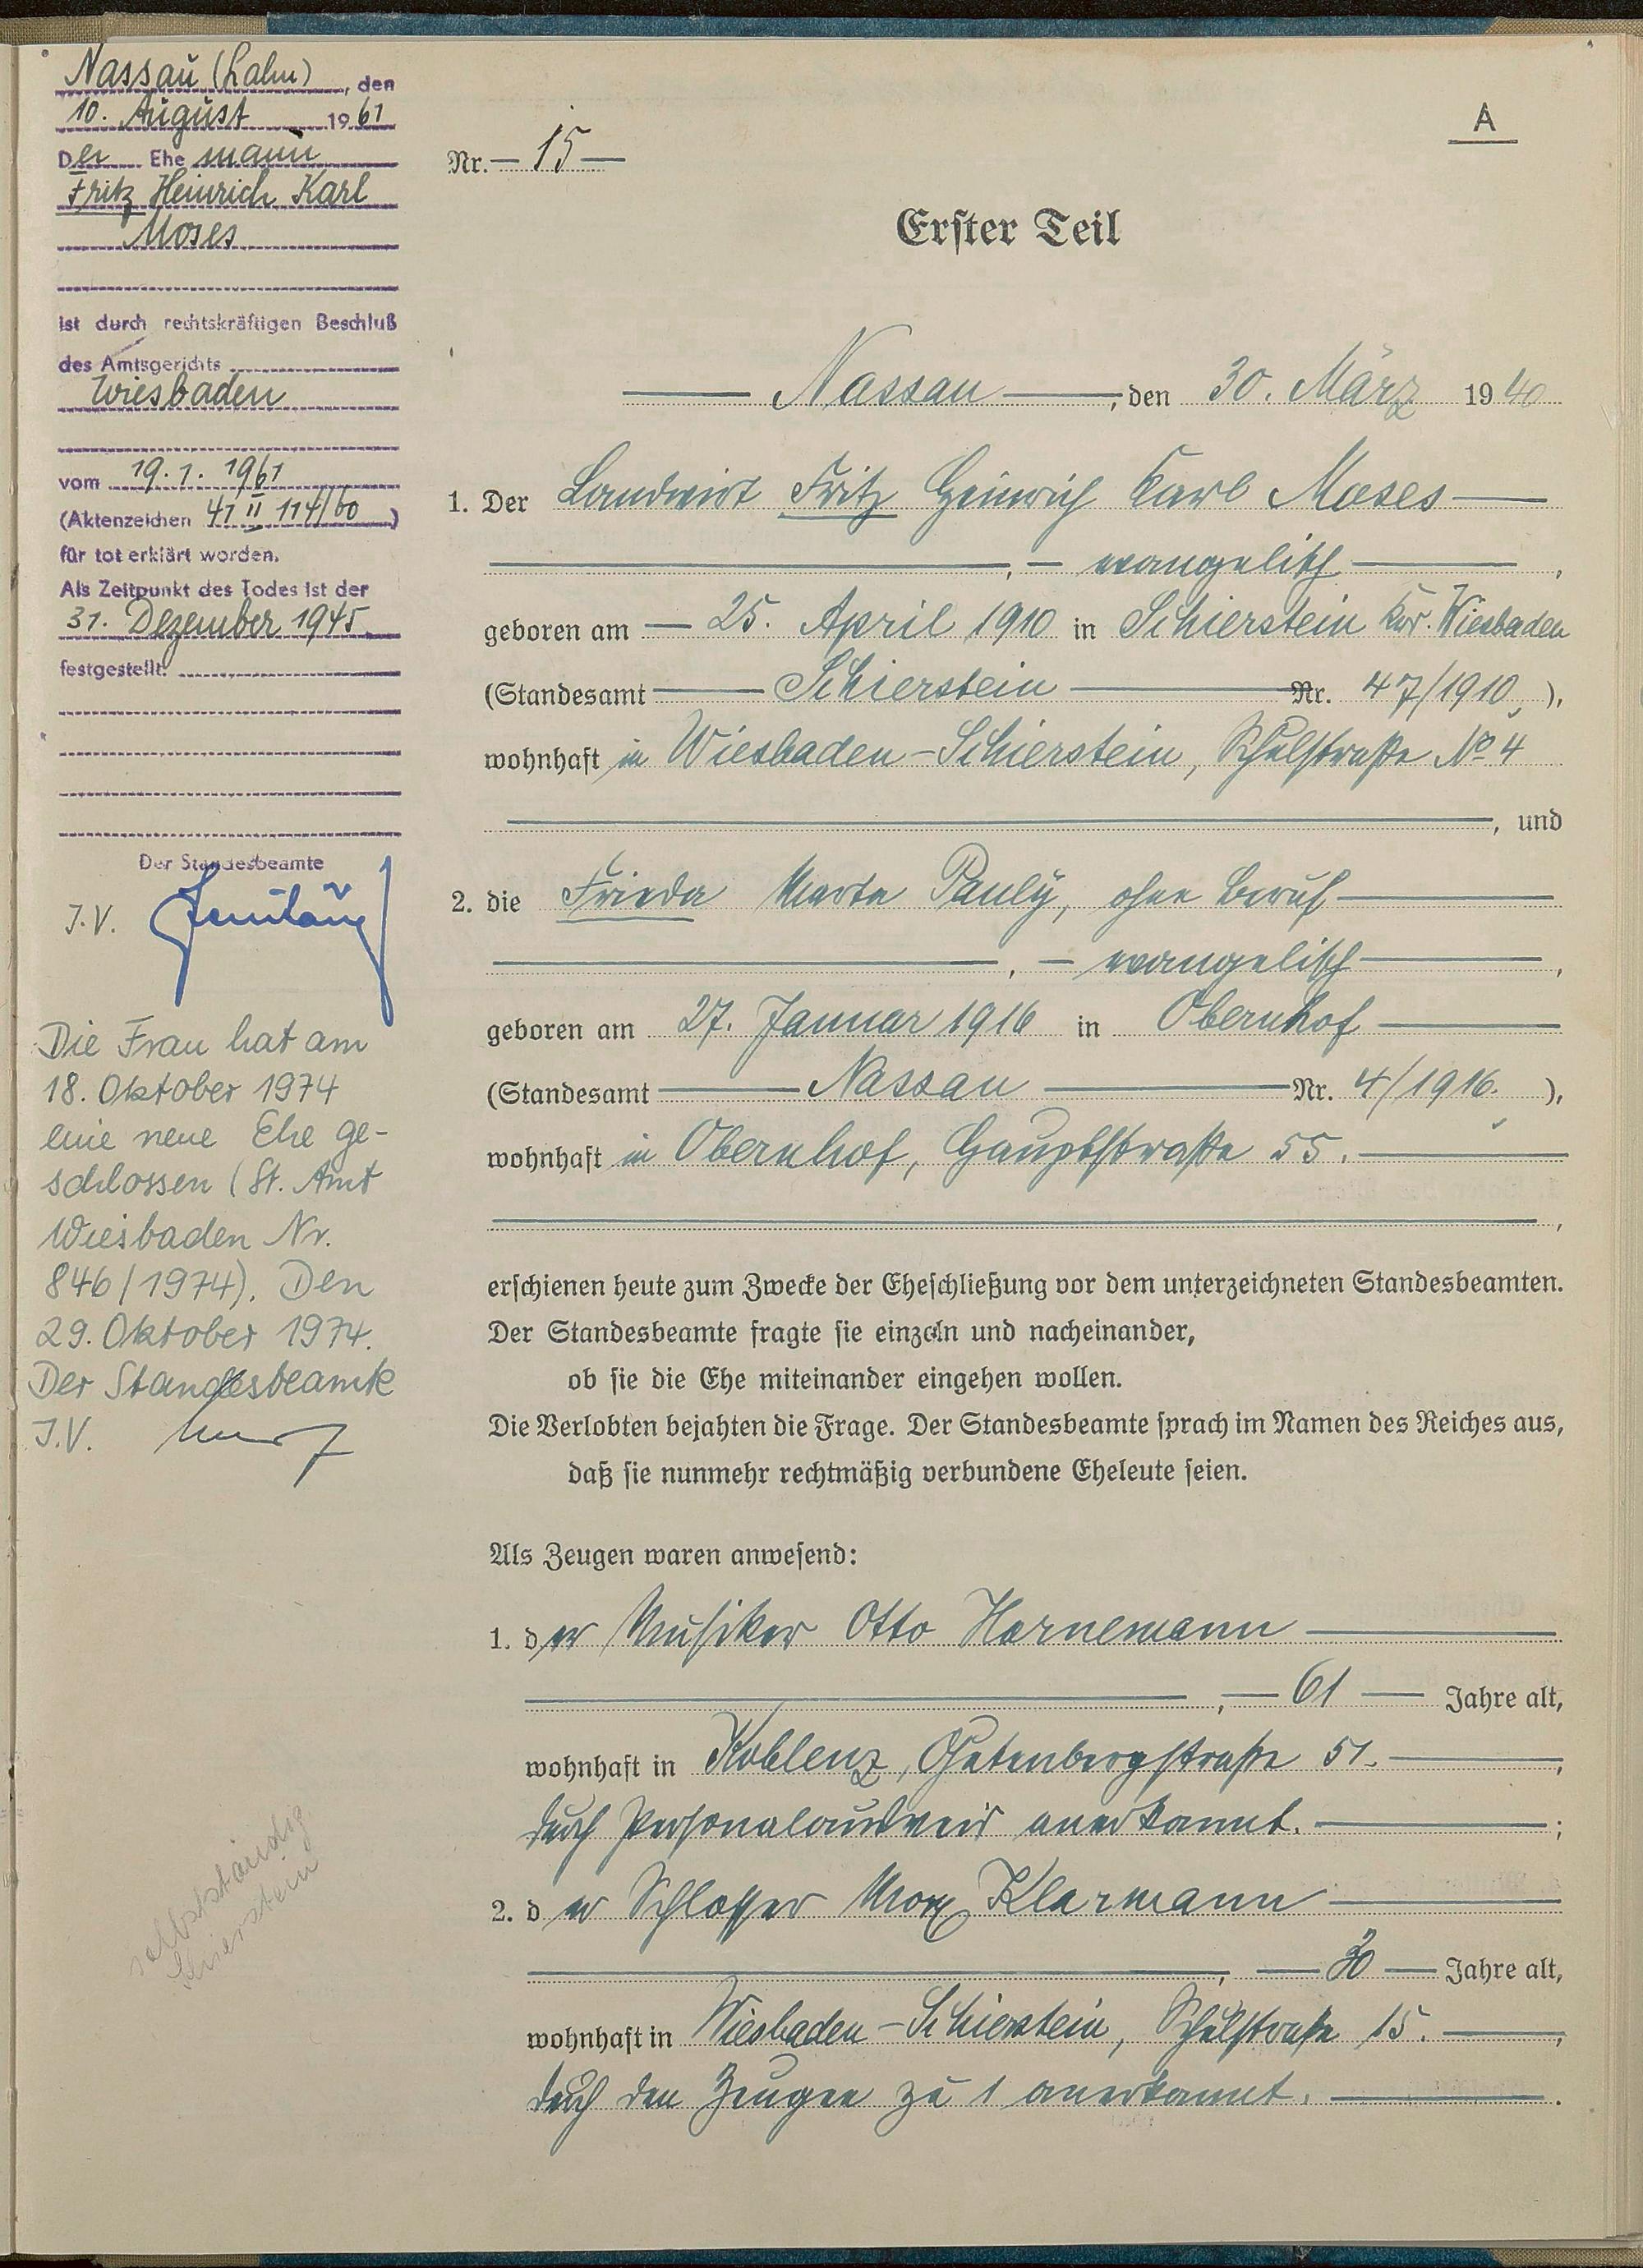 Nassau (Lahn), den
10. August 1961
Der Ehemann
Fritz Heinrich Karl
Moses
ist durch rechtskräftigen Beschluß
des Amtsgerichts
Wiesbaden
vom 19.1.1961
(Aktenzeichen 41 II 114/60)
für tot erklärt worden.
Als Zeitpunkt des Todes ist der
31. Dezember 1945
festgestellt.
Der Standesbeamte
J.V.
Die Frau hat am
18. Oktober 1974
eine neue Ehe ge-
schlossen (St. Amt
Wiesbaden Nr.
846/1974). Den
29. Oktober 1974.
Der Standesbeamte
J.V.
selbständig
Schierstein
A
Nr. 15
Erster Teil
Nassau, den 30. März 1940
1. Der Landwirt Fritz Heinrich Karl Moses
, evangelisch,
geboren am 25. April 1910 in Schierstein Kr. Wiesbaden
(Standesamt Schierstein Nr. 47/1910),
wohnhaft in Wiesbaden-Schierstein, Schulstraße No 4
, und
2. die Frieda Marta Pauly, ohne Beruf
, evangelisch,
geboren am 27. Januar 1916 in Obernhof
(Standesamt Nassau Nr. 4/1916.),
wohnhaft in Obernhof, Hauptstraße 55.
,
erschienen heute zum Zwecke der Eheschließung vor dem unterzeichneten Standesbeamten.
Der Standesbeamte fragte sie einzeln und nacheinander,
ob sie die Ehe miteinander eingehen wollen.
Die Verlobten bejahten die Frage. Der Standesbeamte sprach im Namen des Reiches aus,
daß sie nunmehr rechtmäßig verbundene Eheleute seien.
Als Zeugen waren anwesend:
1. der Musiker Otto Hornemann
, 61 Jahre alt,
wohnhaft in Koblenz, Gutenbergstraße 51.,
durch Personalausweis anerkannt.;
2. der Schlosser Max Klarmann
, 30 Jahre alt,
wohnhaft in Wiesbaden-Schierstein, Schulstraße 15.,
durch den Zeugen zu 1 anerkannt.